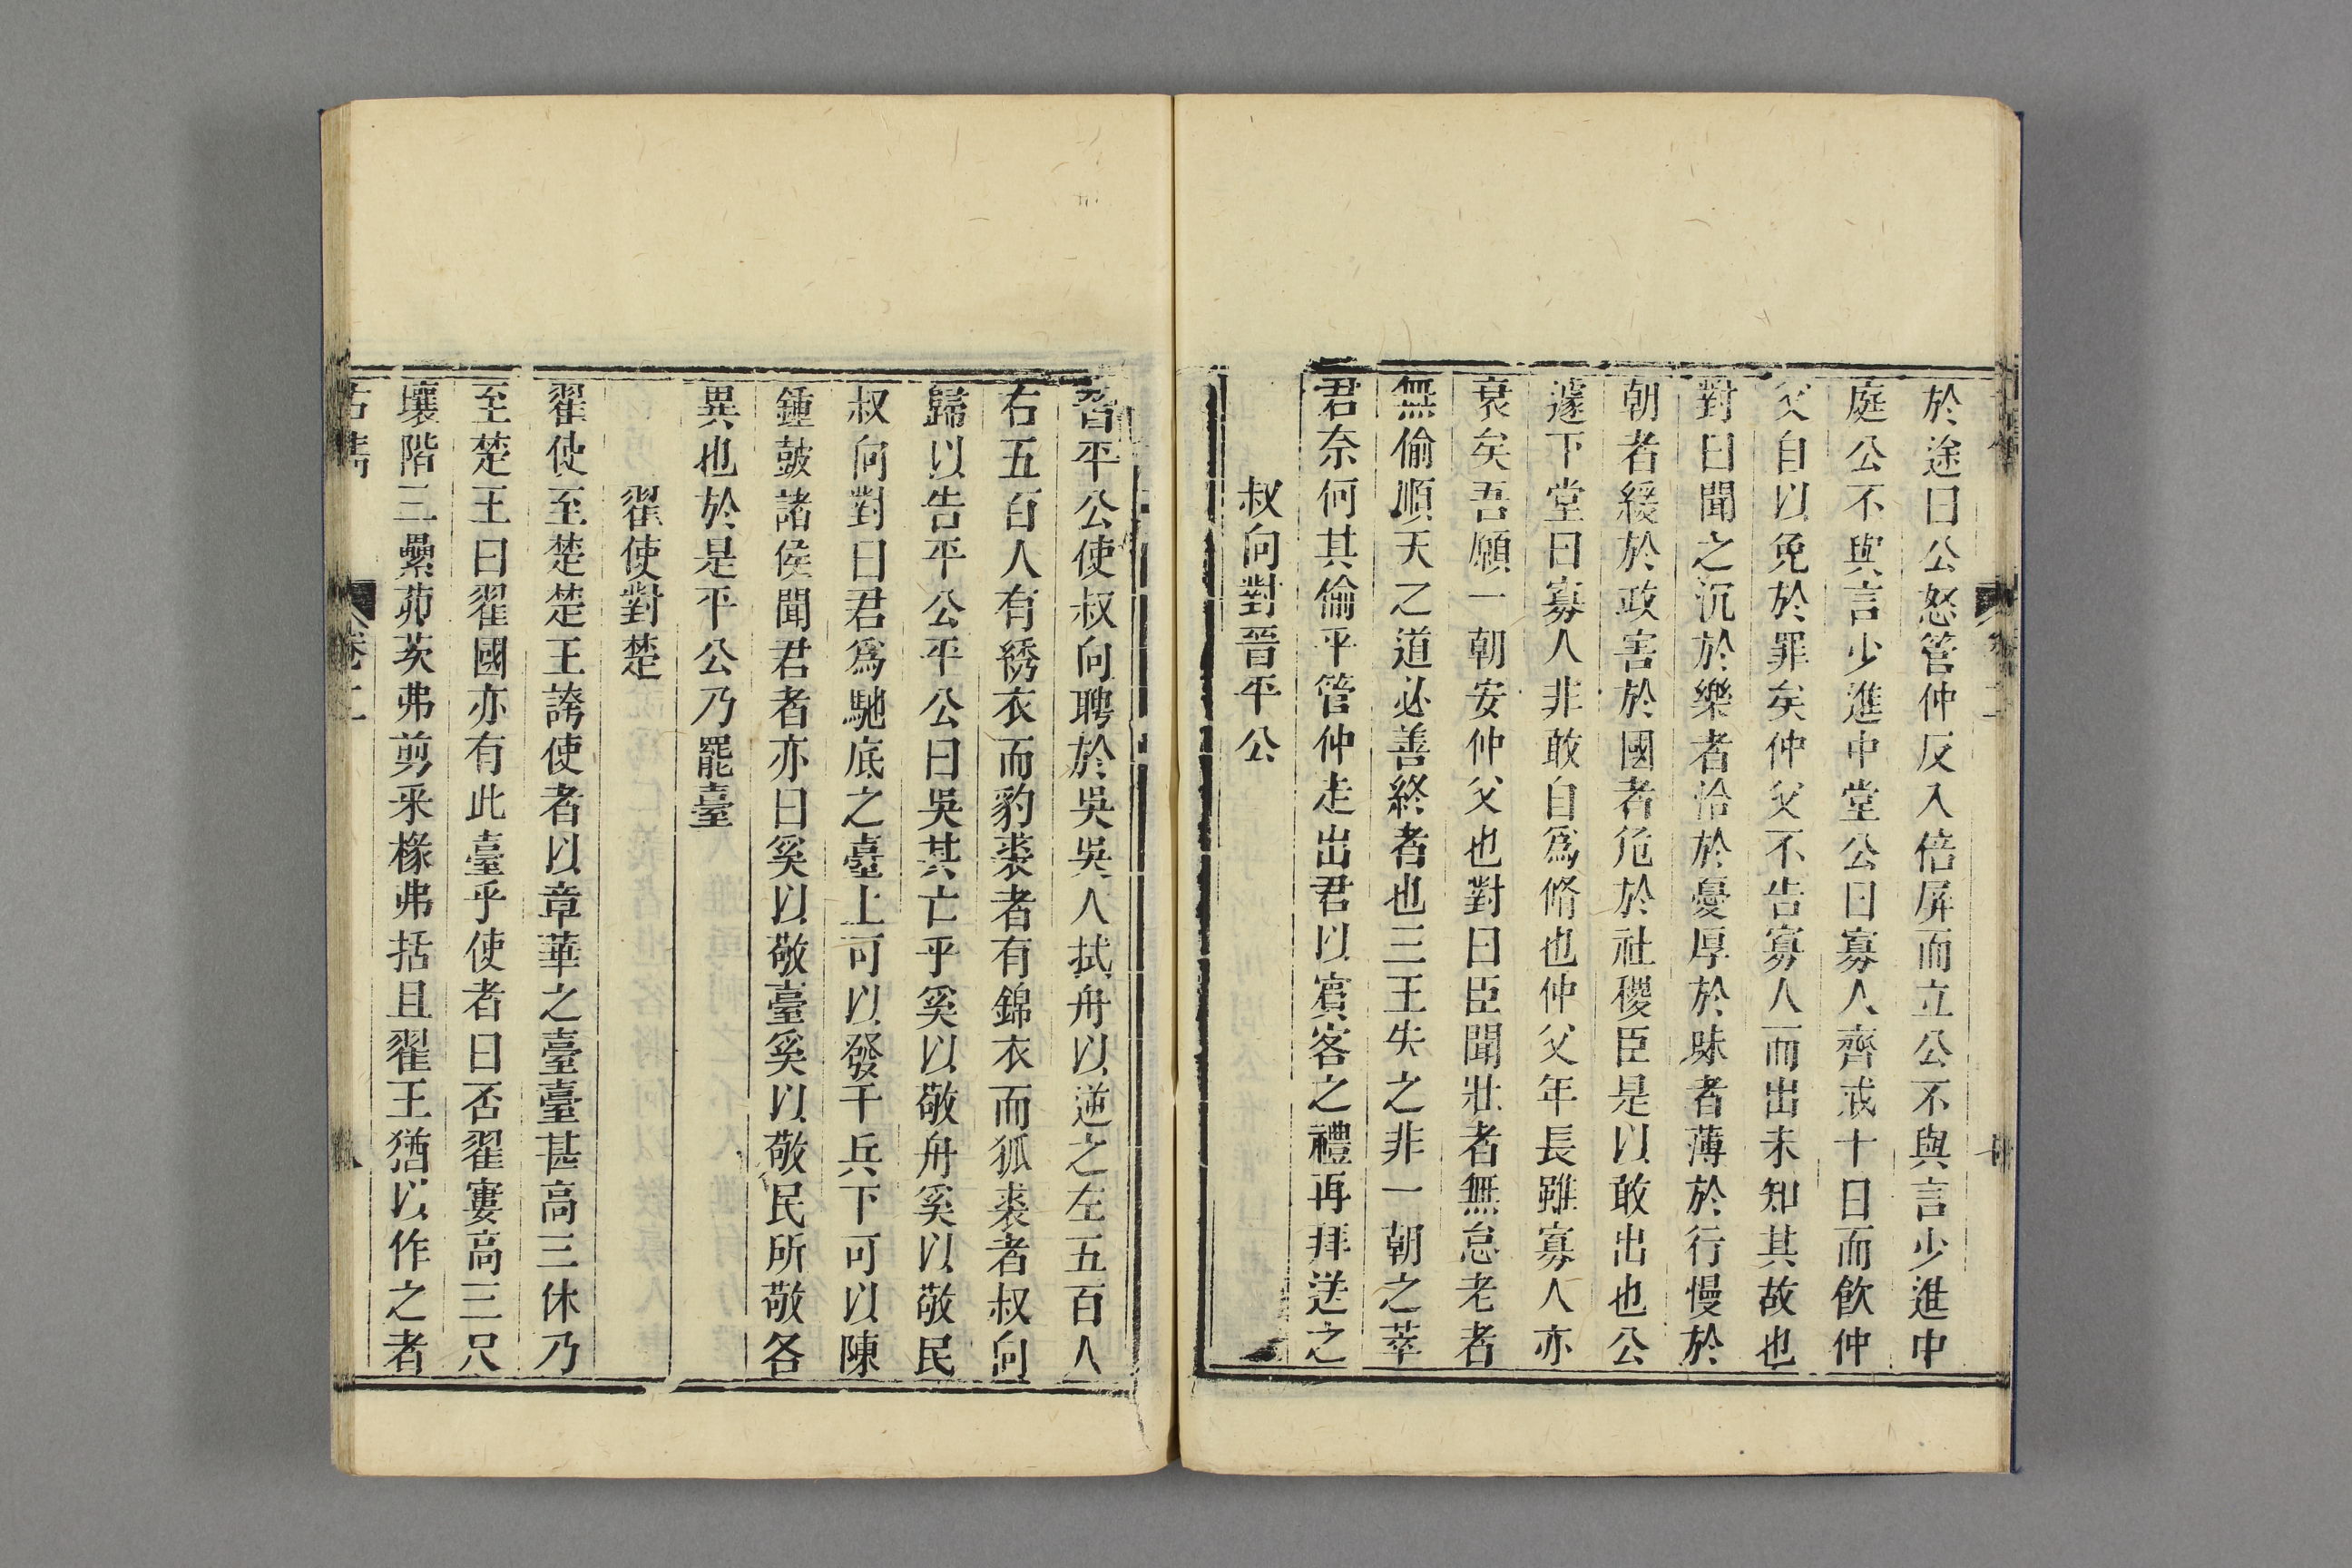 於途曰公怒管仲反入倍屏而立公不與言少進中
庭公不與言少進中堂公曰寡人齊戒十日而飲仲
父自以免於罪矣仲父不告寡人而出未知其故也
對曰聞之沉於樂者洽於憂厚於味者薄於行慢於
朝者緩於政害於國者危於社稷臣是以敢出也公
遽下堂曰寡人非敢自爲脩也仲父年長雖寡人亦
衰矣吾願一朝安仲父也對曰臣聞壯者無怠老者
無偷順天之道必善終者也三王失之非一朝之萃
君奈何其偷乎管仲走出君以賓客之禮再拜送之
叔向對晉平公
晉平公使叔向聘於吳吳人拭舟以逆之左五百人
右五百人有綉衣而豹裘者有錦衣而狐裘者叔向
歸以告平公平公曰吳其亡乎奚以敬舟奚以敬民
叔向對曰君爲馳底之臺上可以發千兵下可以陳
鍾鼓諸侯聞君者亦曰奚以敬臺奚以敬民所敬各
異也於是平公乃罷臺
翟使對楚
翟使至楚楚王誇使者以章華之臺臺甚高三休乃
至楚王曰翟國亦有此臺乎使者曰否翟寠高三尺
壤階三纍茆茨弗剪采椽弗括且翟王猶以作之者
卷二